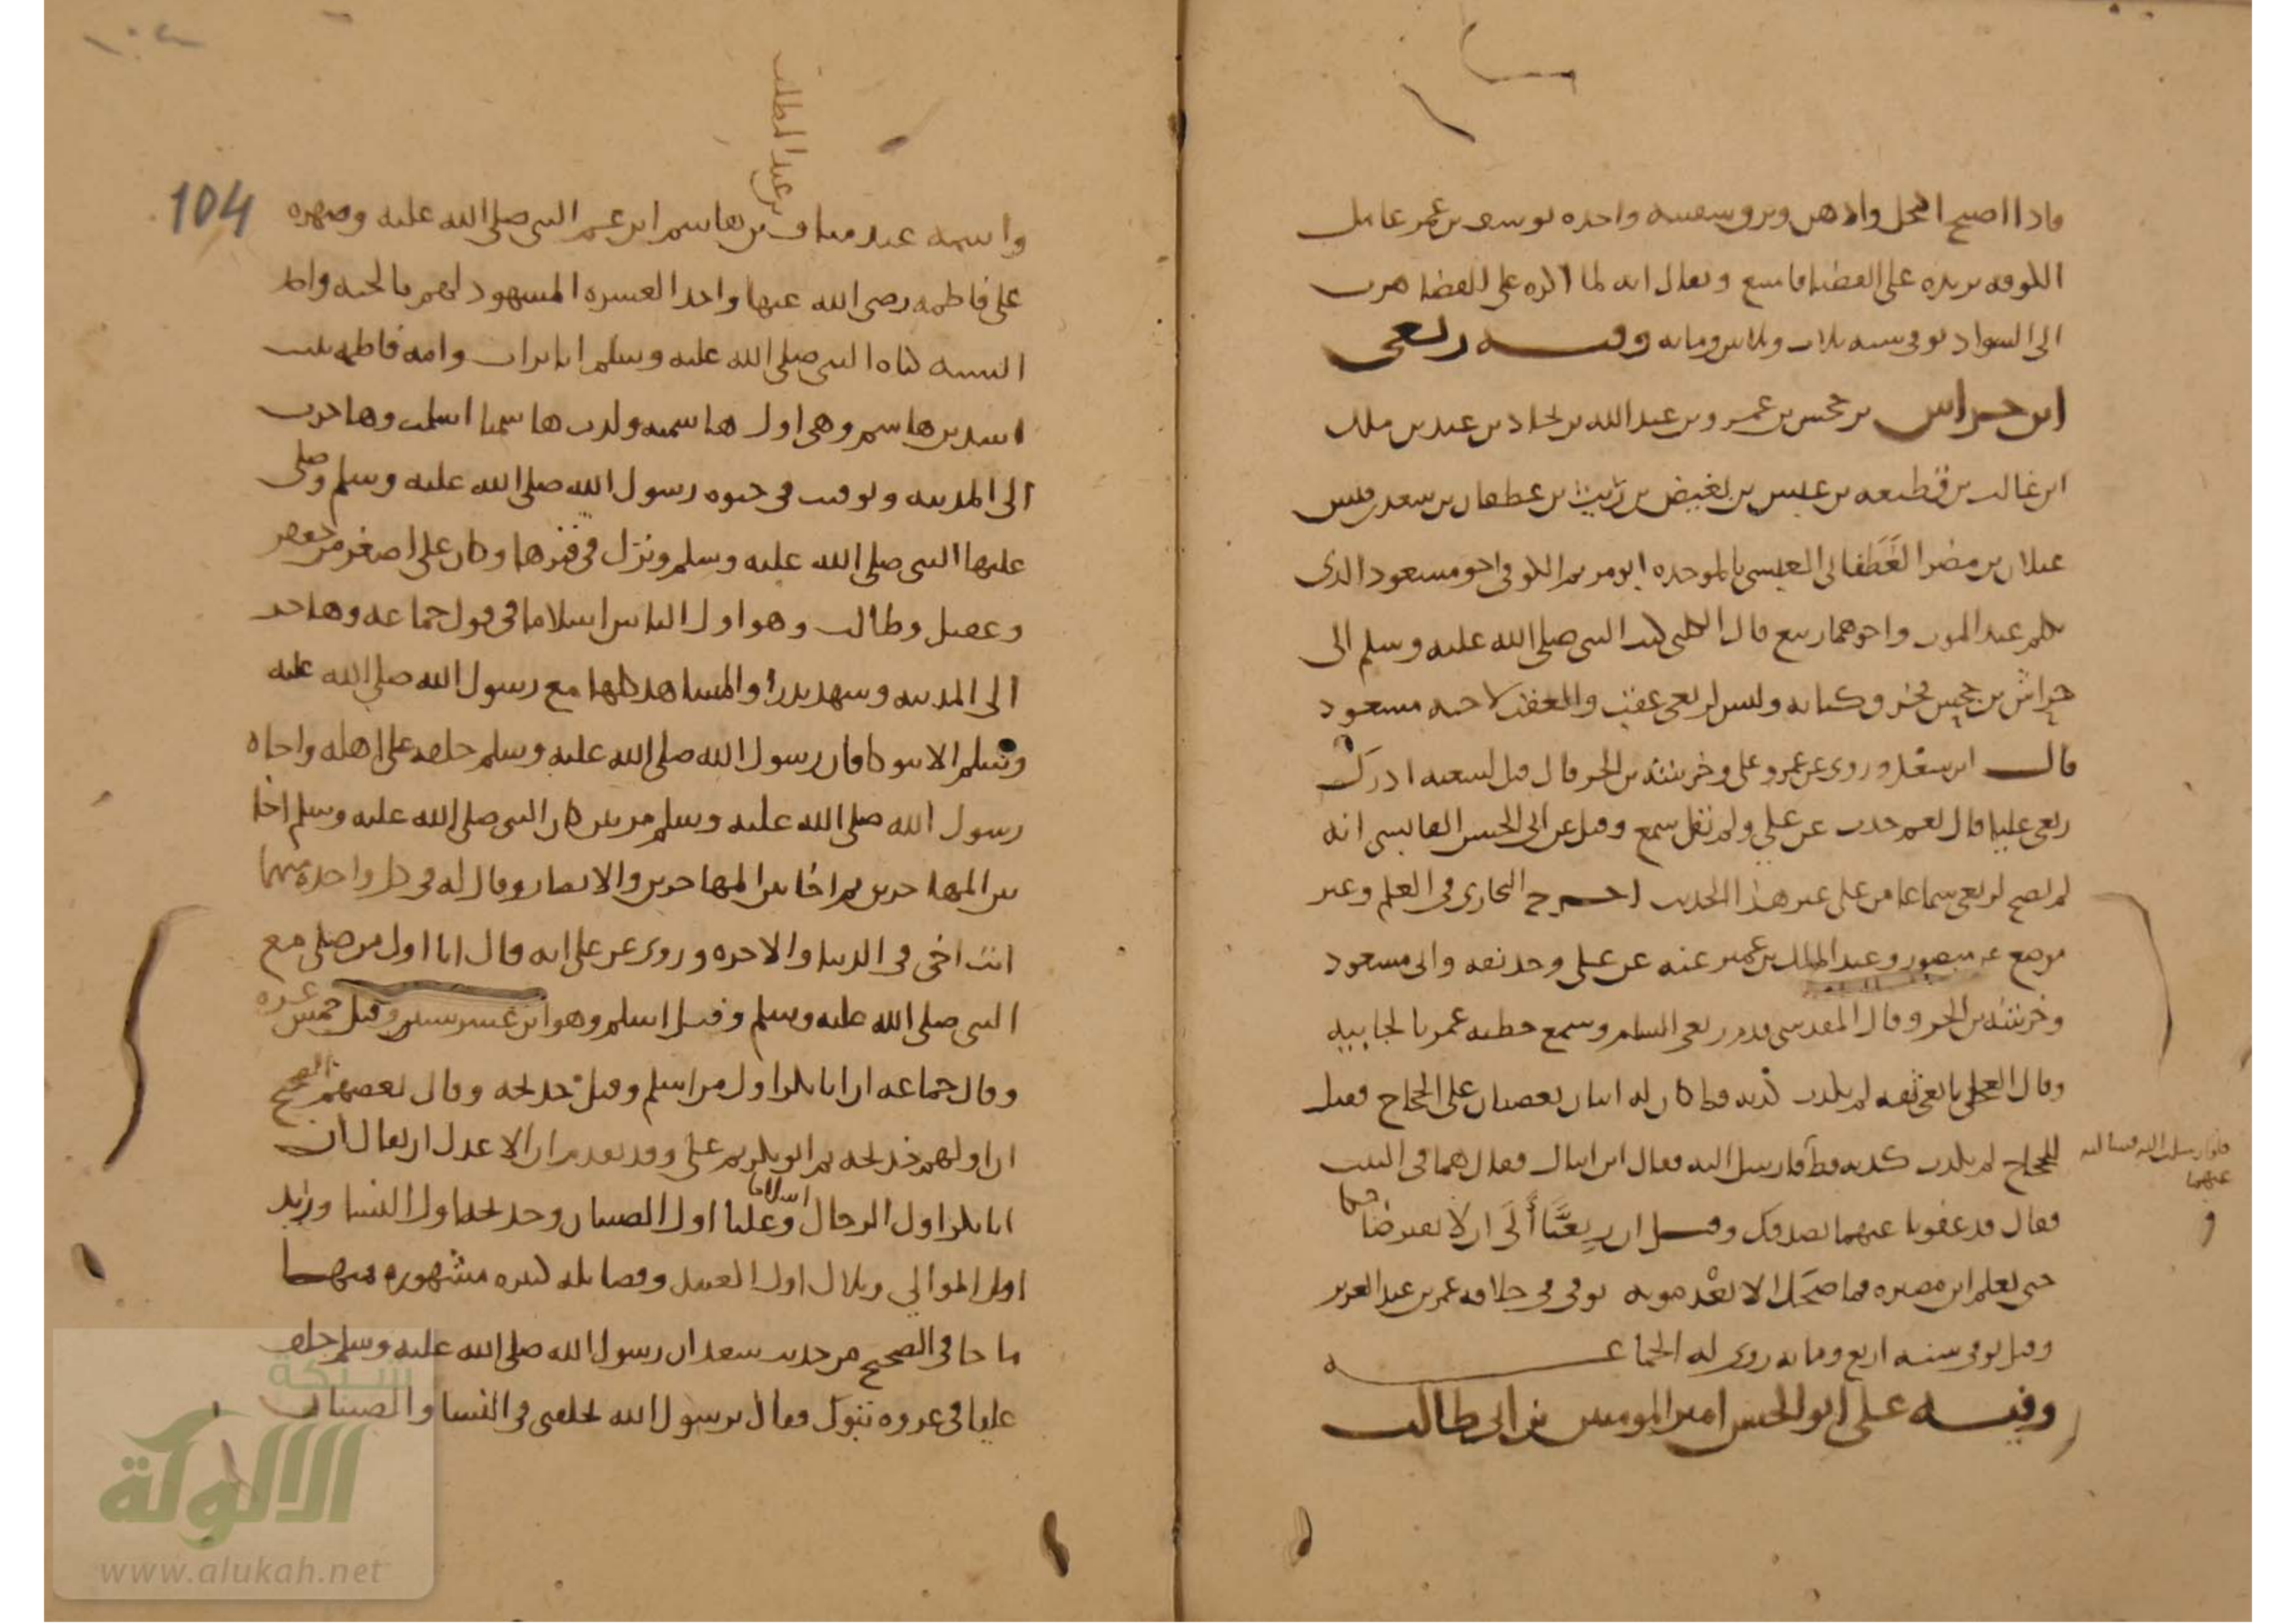 فاذا اصبح اكتحل وادهن وبرو سفينة واحده يوسف بن عمر عامل
الكوفه يريده على القضا فامتنع ويقال انه لما اكره على القضا هرب
الى السواد توفى سنه ثلاث وثلاثين ومايه وفيه ربعى
ابن حراش بن جحش بن عمرو بن عبد الله بن بجاد بن عبد بن ملك
ابن غالب بن قطيعه بن عبس بن بغيض بن ريث بن غطفان بن سعد بن قيس
عيلان بن مضر الغَطَفانى العبسى بالموحده ابو مريم الكوفى اخو مسعود الذى
تكلم عند الموت واخوهما ربيع قال الكلبى كتب النبى صلى الله عليه وسلم الى
حِراش بن جحش فخرق كتابه وليس لربعى عقب والعقب لاخيه مسعود
قال ابن سعد وروى عن عمر وعلى وخرشة بن الحر قال قيل لشعبه ادرك
ربعى عليا قال نعم حدث عن علي ولم نقل سمع وقيل عن ابى الحسن القابسى انه
لم يصح لربعى سماعا من على غير هذا الحديث اخرج البخارى فى العلم وغير
موضع عن منصور وعبد الملك بن عمير عنه عن على وحذيفه وابى مسعود
وخرشة بن الحر وقال المقدسى قدم ربعى الشام وسمع خطبه عمر بالجابيه
وقال العجلى تابعى ثقه لم يكذب كذبه قط كان له ابنان يعصيان على الحجاج فقيل
للحجاج لم يكذب كذبه قط فارسل اليه فقال اين ابناك فقال هما فى البيت
فلو ارسلت اليه فسالته
عنهما
فقال قد عفونا عنهما بصدقك وقيل ان ربعيَّا آلَى ان لا يفتر ضاحكا
حتى يعلم اين مصيره فما ضحك الا بعد موته توفى فى خلافه عمر بن عبد العزيز
وقيل توفى سنه اربع ومايه روى له الجماعه
وفيه على ابو الحسن امير المومنين بن ابى طالب
104
بن عبد المطلب
واسمه عبد مناف بن هاشم ابن عم النبى صلى الله عليه وصهره
على فاطمه رضى الله عنها واحد العشره المشهود لهم بالجنه واحد
الستة كناه النبى صلى الله عليه وسلم ابا تراب وامه فاطمه بنت
اسد بن هاشم وهى اول هاشميه ولدت هاشميا اسلمت وهاجرت
الى المدينه وتوفيت فى حيوه رسول الله صلى الله عليه وسلم وصلى
عليها النبى صلى الله عليه وسلم ونزل فى قبرها وكان على اصغر من جعفر
وعقيل وطالب وهو اول الناس اسلاما فى قول جماعه وهاجر
الى المدينه وشهد بدرا والمشاهد كلها مع رسول الله صلى الله عليه
وسلم الا تبوكا فان رسول الله صلى الله عليه وسلم خلفه على اهله واخاه
رسول الله صلى الله عليه وسلم مرتين كان النبى صلى الله عليه وسلم اخا
بين المهاجرين ثم اخا بين المهاجرين والانصار وقال له فى كل واحده منهما
انت اخى فى الدنيا والاخره وروى عن على انه قال انا اول من صلى مع
النبى صلى الله عليه وسلم وقيل اسلم وهو ابن عشر سنين وقيل خمس عشره
وقال جماعه ان ابا بكر اول من اسلم وقيل خديجه وقال بعضهم الصحيح
ان اولهم خديجه ثم ابو بكر ثم على وقد تقدم ان الاعدل ان يقال ان
ابا بكر اول الرجال اسلاما وعليا اول الصبيان وخديجه اول النسا وزيد
اول الموالي وبلال اول العبيد وفضايله كثيره مشهوره منها
ما جا فى الصحيح من حديث سعد ان رسول الله صلى الله عليه وسلم خلف
عليا فى غزوه تبوك فقال يرسول الله تخلفنى فى النسا والصبيان
شبكة
الألوكة
www.alukah.net